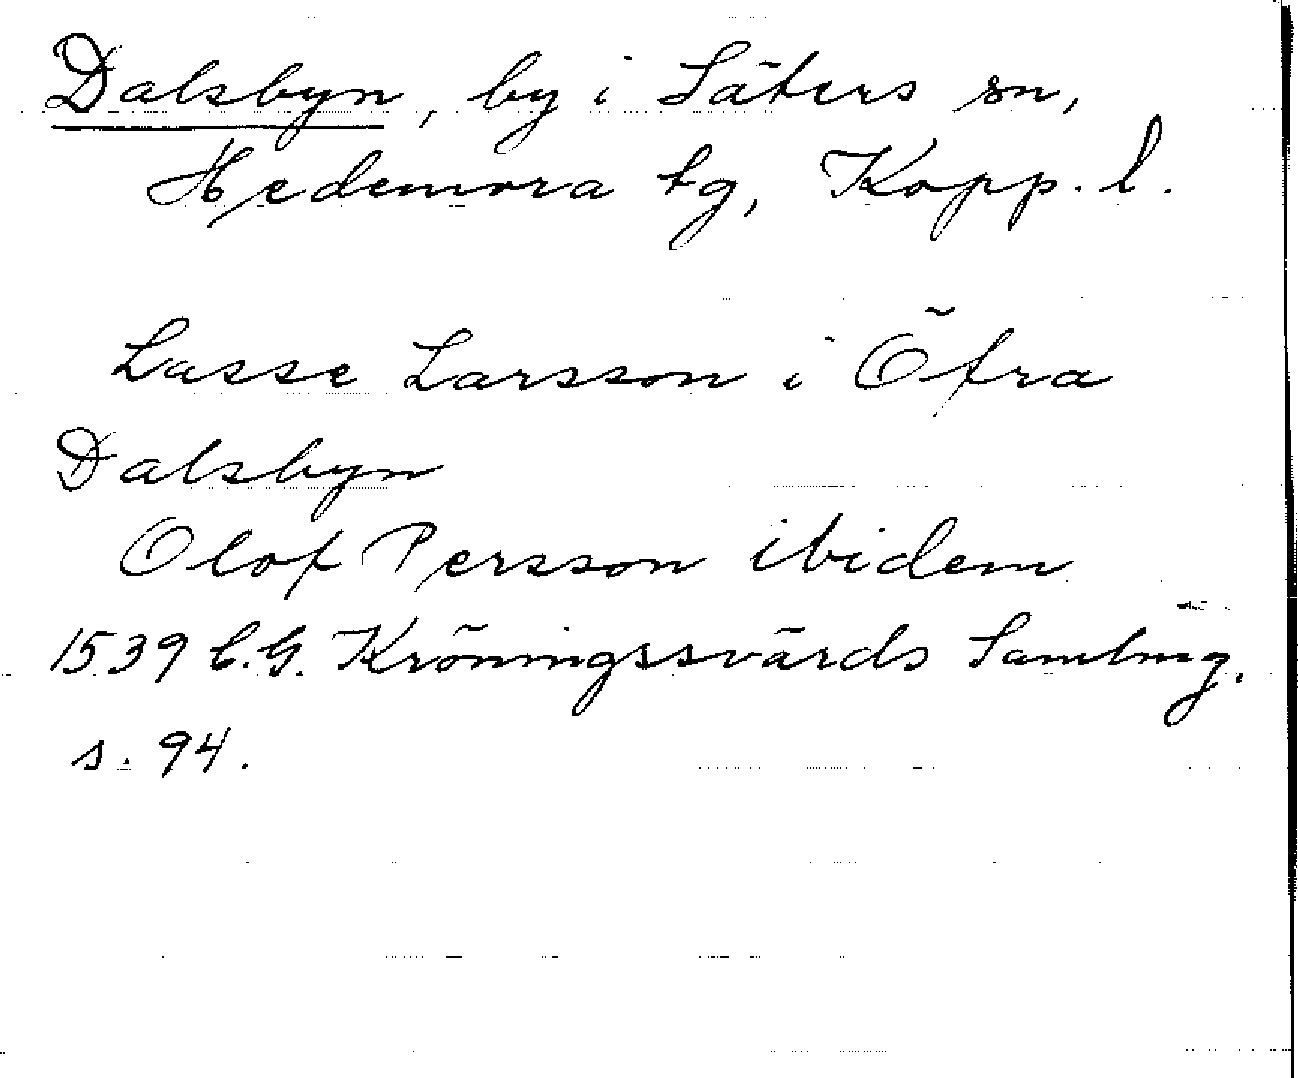 Dalsbyn, by i Säters sn,
Hedemora tg, Kopp. l.
Lasse Larsson i Öfra
Dalsbyn
Olof Persson ibidem
1539 C.G. Kröningssvärds Samling.
s. 94.